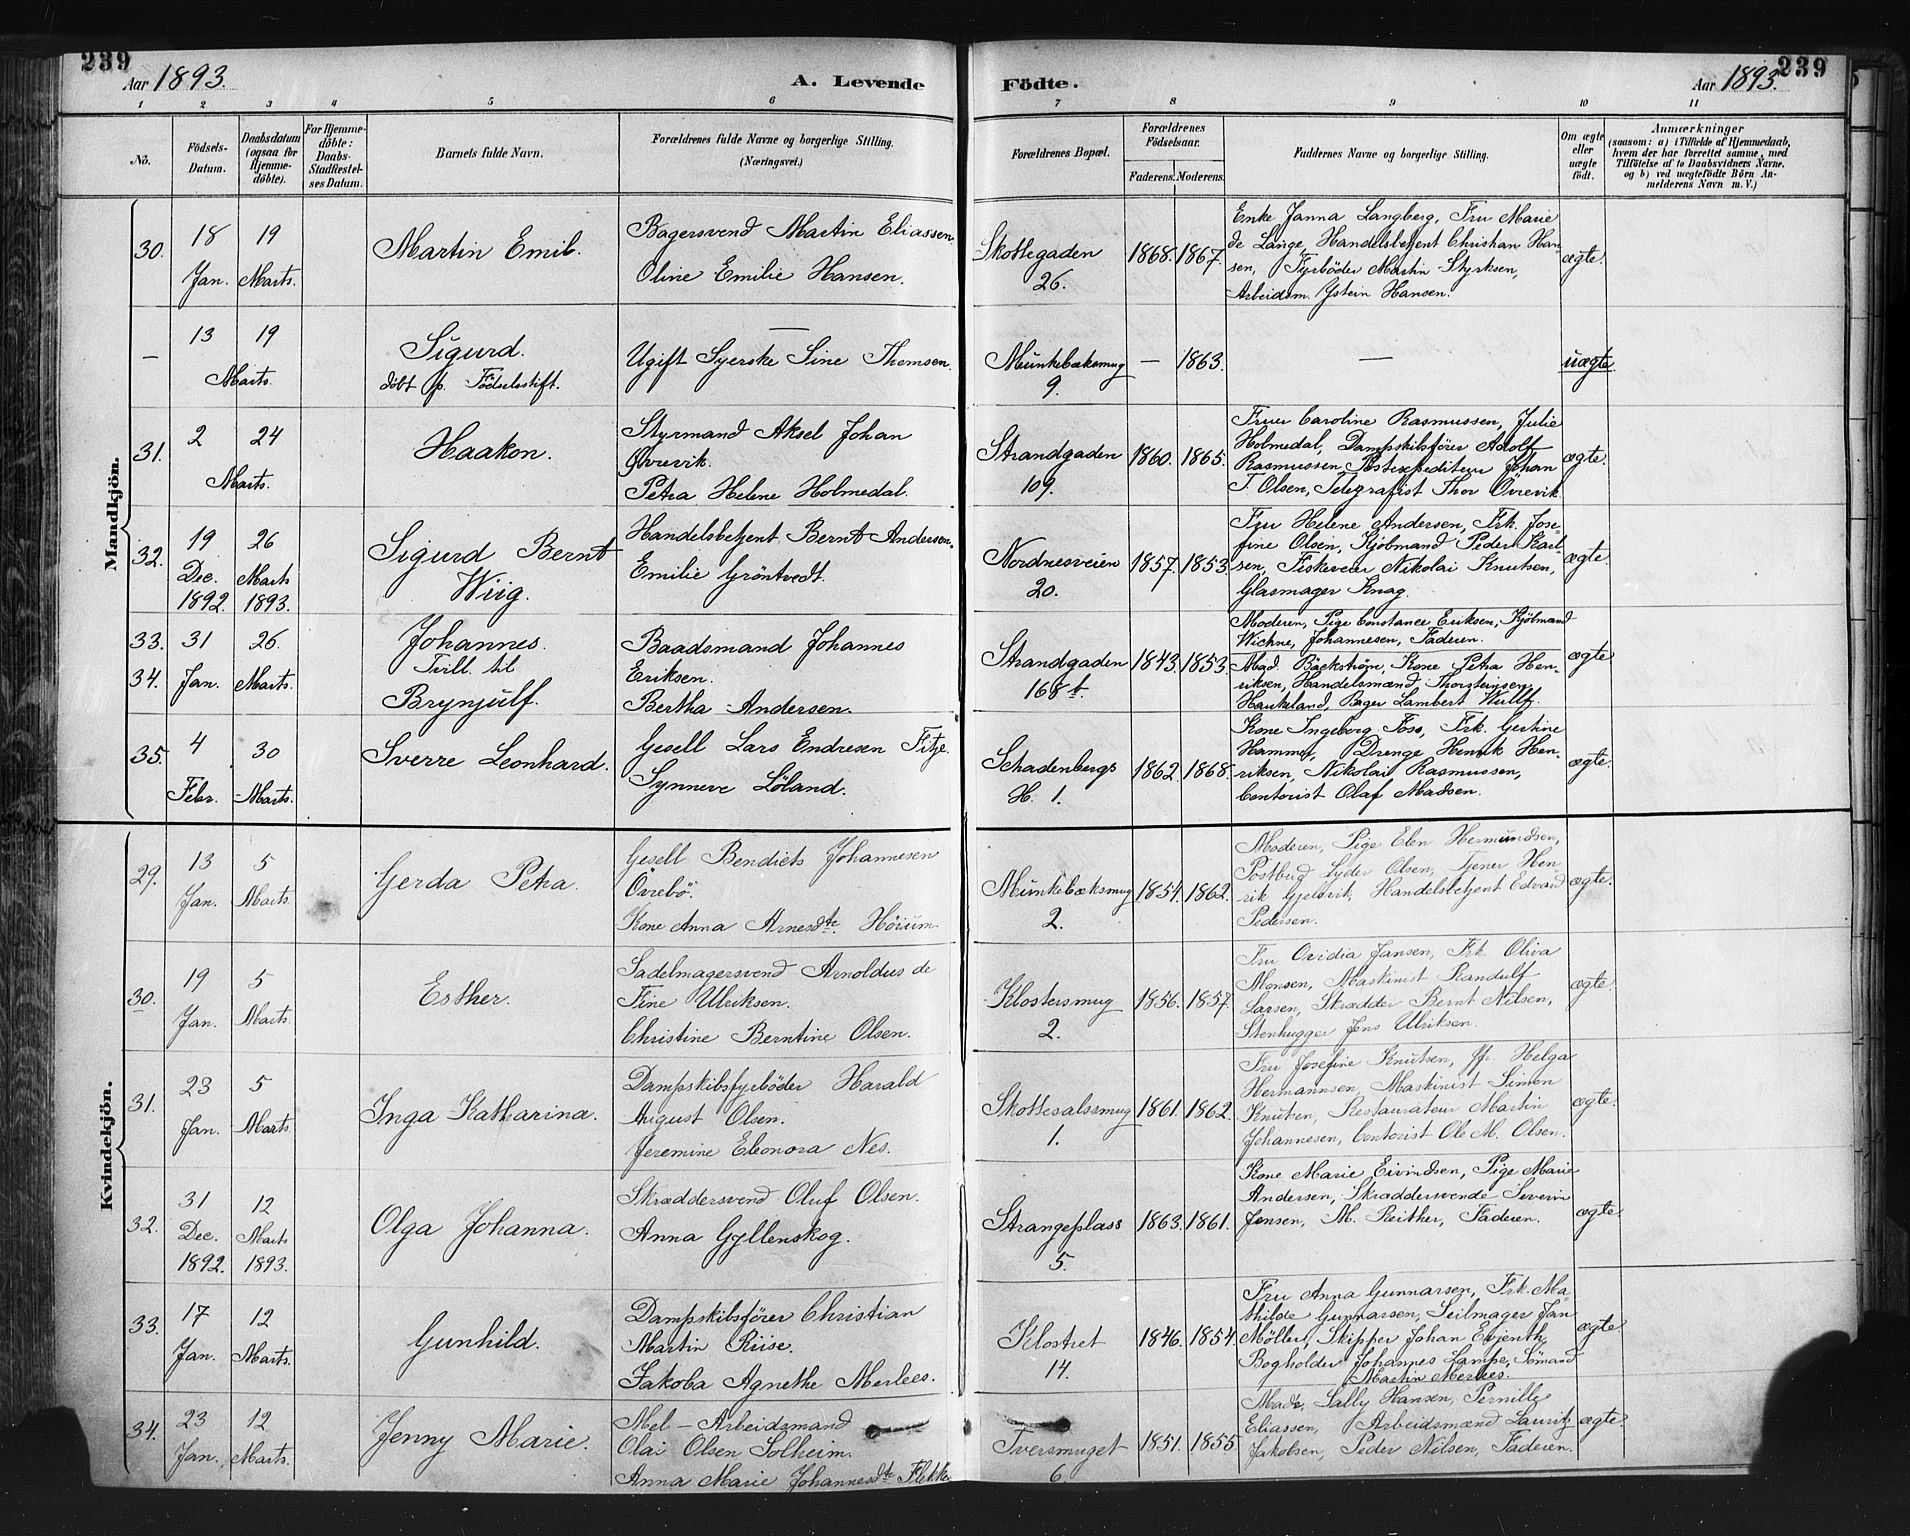 239
Aar 1893.
A. Levende
Födte.
Aar 1893.
239
1 2 3 4 5 6 7 8 9 10 11
No.
Födsels-
Datum.
Daabsdatum
(ogsaa for
Hjemme-
döbte).
For Hjemme-
döbte:
Daabs-
Stadfæstel-
ses Datum.
Barnets fulde Navn.
Forældrenes fulde Navne og borgerlige Stilling.
(Næringsvei.)
Forældrenes Bopæl.
Forældrenes
Födselsaar.
Faderens. Moderens.
Faddernes Navne og borgerlige Stilling.
Om ægte
eller
uægte
födt.
Anmærkninger
(saasom: a) i Tilfælde af Hjemmedaab,
hvem der har forrettet samme, med
Tilföielse af to Daabsvidners Navne,
og b) ved uægtefödte Börn An-
melderens Navn m. V.)
Mandkjön.
30.
18
Jan.
19
Marts.
Martin Emil.
Bagersvend Martin Eliassen
Oline Emilie Hansen.
Skottegaden
26.
1868. 1867.
Enke Janna Langberg, Fru Marie
de Lange, Handelsbetjent Christian Han-
sen, Fyrböder Martin Styrksen,
Arbeidsm. Ystein Hansen.
ægte.
—
13 19
Marts.
Sigurd.
döbt p. Födselsstift.
—
Ugift Syerske Sine Thomsen.
Munkebæksmug
9.
— 1863.
—
uægte.
31.
2 24
Marts.
Haakon.
Styrmand Aksel Johan
Øvrevik.
Petra Helene Holmedal.
Strandgaden
109.
1860. 1865.
Fruer Caroline Rasmussen, Julie
Holmedal, Dampskibsförer Adolf
Rasmussen, Postexpediteur Johan
T. Olsen, Telegrafist Thor Övrevik
ægte.
32.
19
Dec.
1892.
26
Marts
1893.
Sigurd Bernt
Wiig.
Handelsbetjent Bernt Andersen.
Emilie Gröntvedt.
Nordnesveien
20.
1857. 1853.
Fru Helene Andersen, Frk. Jose-
fine Olsen, Kjöbmand Peder Karl-
sen, Fiskeveier Nikolai Knutsen,
Glasmager Knag.
ægte.
33.
34.
31
Jan.
26.
Marts.
Johannes.
Tvill. til
Brynjulf.
Baadsmand Johannes
Eriksen.
Bertha Andersen.
Strandgaden
168 b.
1843. 1853.
Moderen, Pige Constance Eriksen, Kjöbmand
Wichne, Johannesen, Faderen.
Mad. Bäckström, Kone Petra Hen-
riksen, Handelsmænd Thorsteinsen,
Haukeland, Bager Lambert Wulff.
ægte
35.
4
Febr.
30
Marts.
Sverre Leonhard.
Gesell Lars Endresen Fitje.
Synneve Löland.
Schadenbergs
H. 1.
1862. 1868.
Kone Ingeborg Foss, Frk. Gertine
Hammer, Drenge Henrik Hen-
riksen, Nikolai Rasmussen,
Contorist Olaf Madsen.
ægte.
Kvindekjön.
29.
13
Jan.
5
Marts.
Gerda Petra.
Gesell Bendicts Johannesen
Övrebö.
Kone Anna Arnesdtr. Hörum.
Munkebæksmug
2.
1854. 1862.
Moderen, Pige Elen Hermundsen,
Postbud Lyder Olsen, Tjener Hen-
rik Gjelsvik, Handelsbetjent Edvard
Pedersen.
ægte.
30.
19
Jan.
5
Marts.
Esther.
Sadelmagersvend Arnoldus de
Fine Ulriksen.
Christine Berntine Olsen.
Klostersmug
2.
1856. 1857.
Fru Ovidia Jansen, Frk. Oliva
Monsen, Maskinist Randulf
Larsen, Skrædder Bernt Nilsen,
Stenhugger Jens Ulriksen.
ægte.
31.
23
Jan.
5
Marts.
Inga Katharina.
Dampskibsfyrböder Harald
August Olsen.
Jeremine Eleonora Nes.
Skottesalssmug
1.
1861. 1862.
Fru Josefine Knutsen, Jfr. Helga
Hermannsen, Maskinist Simon
Knutsen, Restaurateur Martin
Johannesen, Contorist Ole M. Olsen.
ægte.
32.
31
Dec.
1892.
12
Marts
1893.
Olga Johanna.
Skræddersvend Oluf Olsen.
Anna Gyllenskog.
Strangeplass
5.
1863. 1861.
Kone Marie Eivindsen, Pige Marie
Andersen, Skræddersvende Severin
Jensen, M. Reither, Faderen.
ægte.
33.
17
Jan.
12
Marts.
Gunhild.
Dampskibsförer Christian
Martin Riise.
Jakoba Agnethe Merlees.
Klostret
14.
1846. 1854.
Fru Anna Gunnarsen, Frk. Ma-
thilde Gunnarsen, Seilmager Jan
Möller, Skipper Johan Evjenth,
Bogholder Johannes Lampe, Sömand
Martin Merlees.
ægte.
34.
23
Jan.
12
Marts.
Jenny Marie.
Mel-Arbeidsmand
Olai Olsen Solheim.
Anna Marie Johannesdtr. Flekke
Tversmuget
6.
1851. 1855.
Madr. Sally Hansen, Pernille
Eliassen, Arbeidsmænd Lauritz
Jakobsen, Peder Nilsen, Faderen.
ægte.